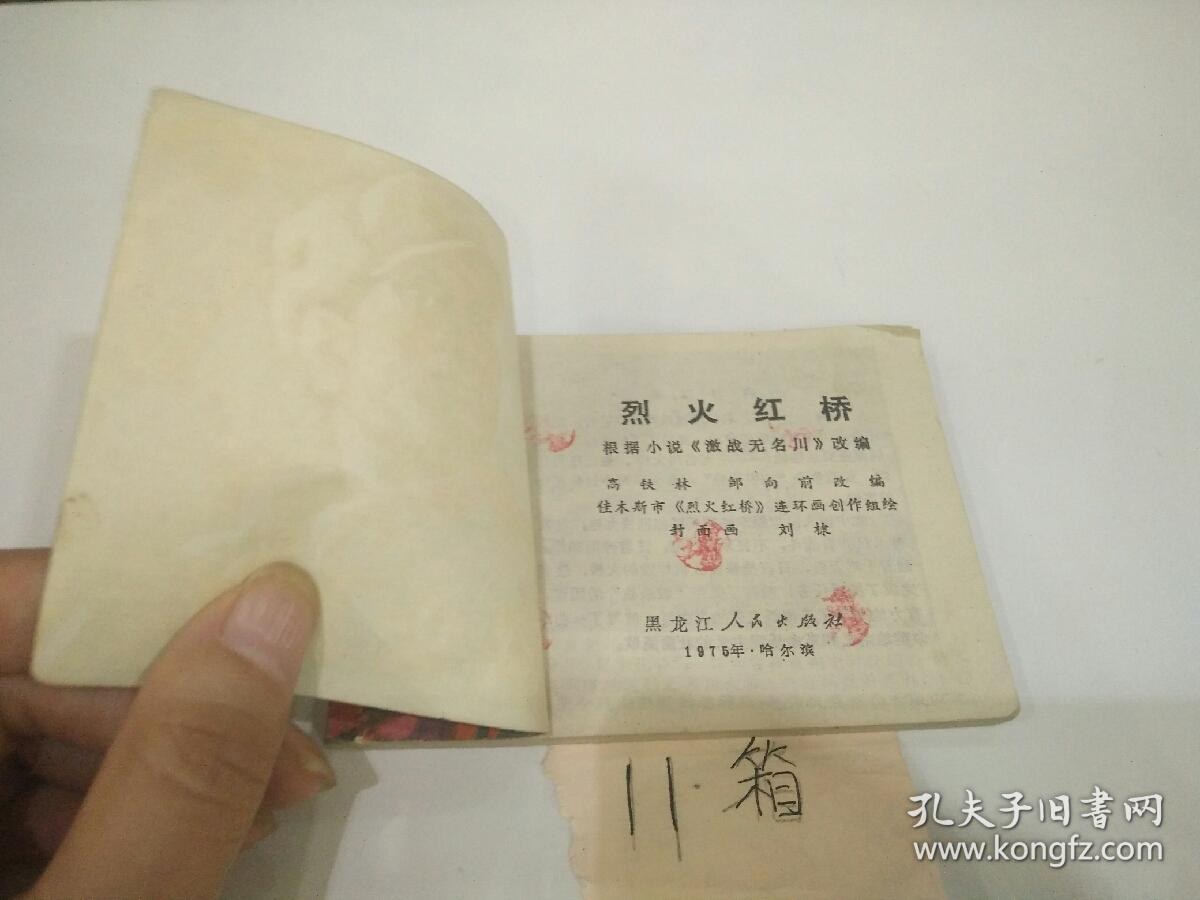 烈火红桥
根据小说《激战无名川》改编
高铁林 邹向前改编
佳木斯市《烈火红桥》连环画创作组绘
封面画 刘棣
黑龙江人民出版社
1975年·哈尔滨
11·箱
孔夫子旧书网
www.kongfz.com